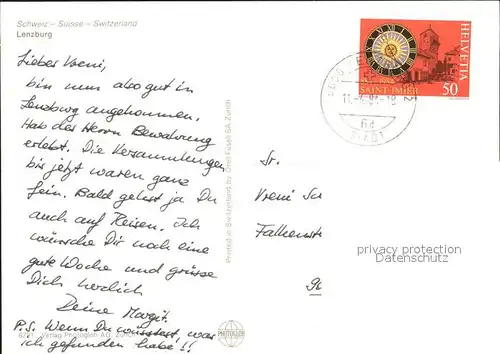 Schweiz – Suisse – Switzerland
Lenzburg
Lieber Vreni,
bin nun also gut in
Lenzburg angekommen.
Hab des Herrn Bewahrung
erlebt. Die Versammlungen
bis jetzt waren ganz
fein. Bald gehst ja Du
auch auf Reisen. Ich
wünsche Dir noch eine
gute Woche und grüsse
Dich herzlich
Deine Margit.
P.S. Wenn Du wüsstest, was
ich gefunden habe!!
Verlag Photoglob AG, Zürich
Printed in Switzerland by Orell Füssli AG, Zürich
PHOTOGLOB
HELVETIA
SAINT-IMIER
50
Sr.
Vreni
Falkenst
privacy protection
Datenschutz